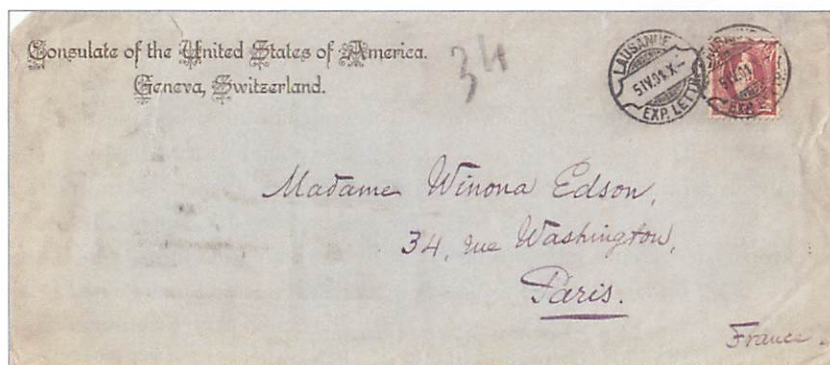 Consulate of the United States of America.
Geneva, Switzerland.
34
LAUSANNE
EXP. LETTR.
Madame Winona Edson,
34, rue Washington,
Paris.
France.